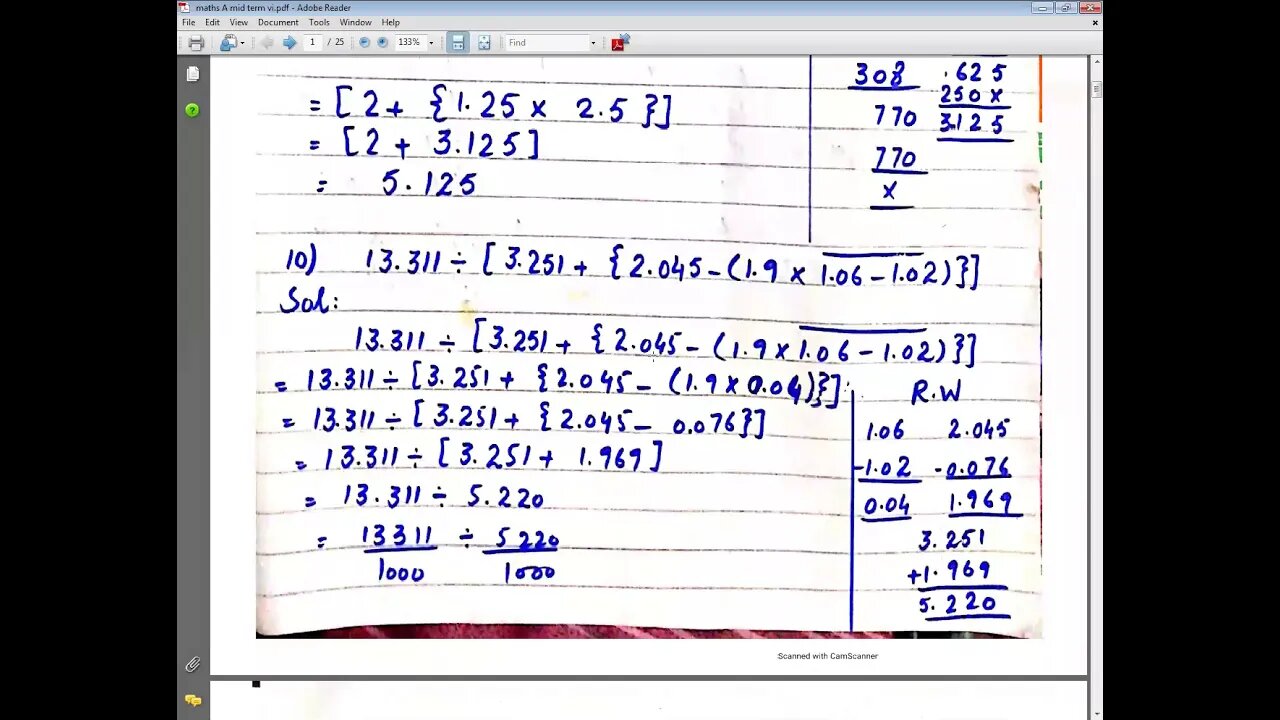 maths A mid term vi.pdf - Adobe Reader
File Edit View Document Tools Window Help
1 / 25 133% Find
308 .625
= [2 + {1.25 × 2.5}] 250×
770 3.125
= [2 + 3.125]
770
= 5.125 ×
10) 13.311 ÷ [3.251 + {2.045 - (1.9 × 1.06 - 1.02)}]
Sol:
13.311 ÷ [3.251 + {2.045 - (1.9 × 1.06 - 1.02)}]
= 13.311 ÷ [3.251 + {2.045 - (1.9 × 0.04)}]
= 13.311 ÷ [3.251 + {2.045 - 0.076}]
= 13.311 ÷ [3.251 + 1.969]
= 13.311 ÷ 5.220
= 13311 ÷ 5220
1000 1000
R.W
1.06 2.045
-1.02 -0.076
0.04 1.969
3.251
+1.969
5.220
Scanned with CamScanner